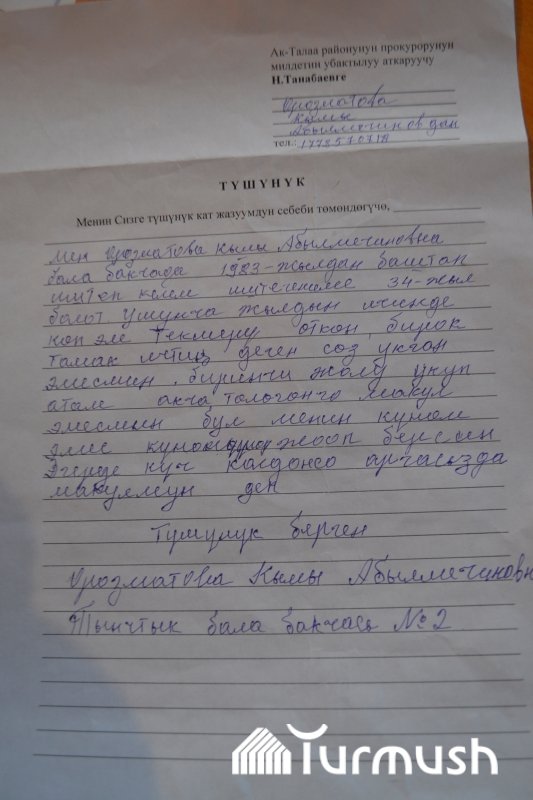 Ак-Талаа районунун прокурорунун
милдетин убактылуу аткаруучу
Н.Танабаевге
Орозматова
Кымы
Абылмечиновдан
тел.:
ТҮШҮНҮК
Менин Сизге түшүнүк кат жазуумдун себеби төмөндөгүчө,
мен Орозматова Кымы Абылмечиновна
бала бакчада 1983-жылдан баштап
иштеп келем иштегениме 34-жыл
болот ушунча жылдын ичинде
көп эле текшерүү өткөн, бирок
тамак ичтиң деген соз уккан
эмесмин. биринчи жолу угуп
атам акча төлөгөнгө макул
эмесмин бул менин күнөөм
эмес жооп берсин
Эгерде күч колдонсо арчасызда
ден
Түшүнүк берген
Орозматова Кымы Абылмечиновн
Тынчтык бала бакчасы №2
Turmush